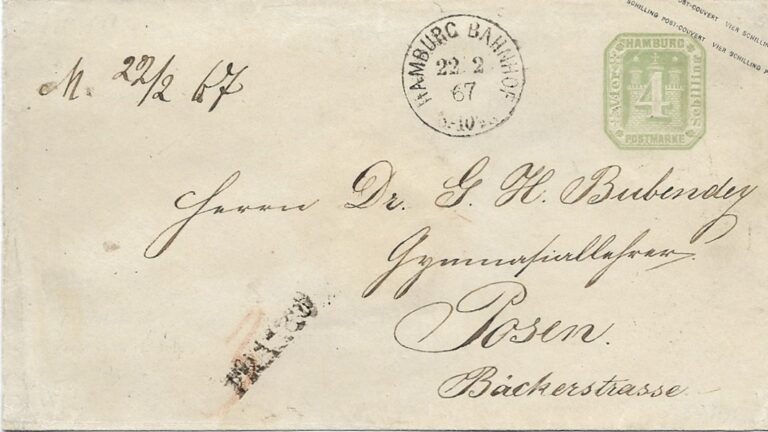 SCHILLING POST-COUVERT VIER SCHILLING P
POST-COUVERT VIER SCHILLIN
HAMBURG BAHNHOF
22 2
67
HAMBURG
Vier
4
Schilling
POSTMARKE
M. 22/2 67
Herrn Dr. G. H. Bubendey
Gymnasiallehrer
Posen.
Bäckerstrasse
FRANCO